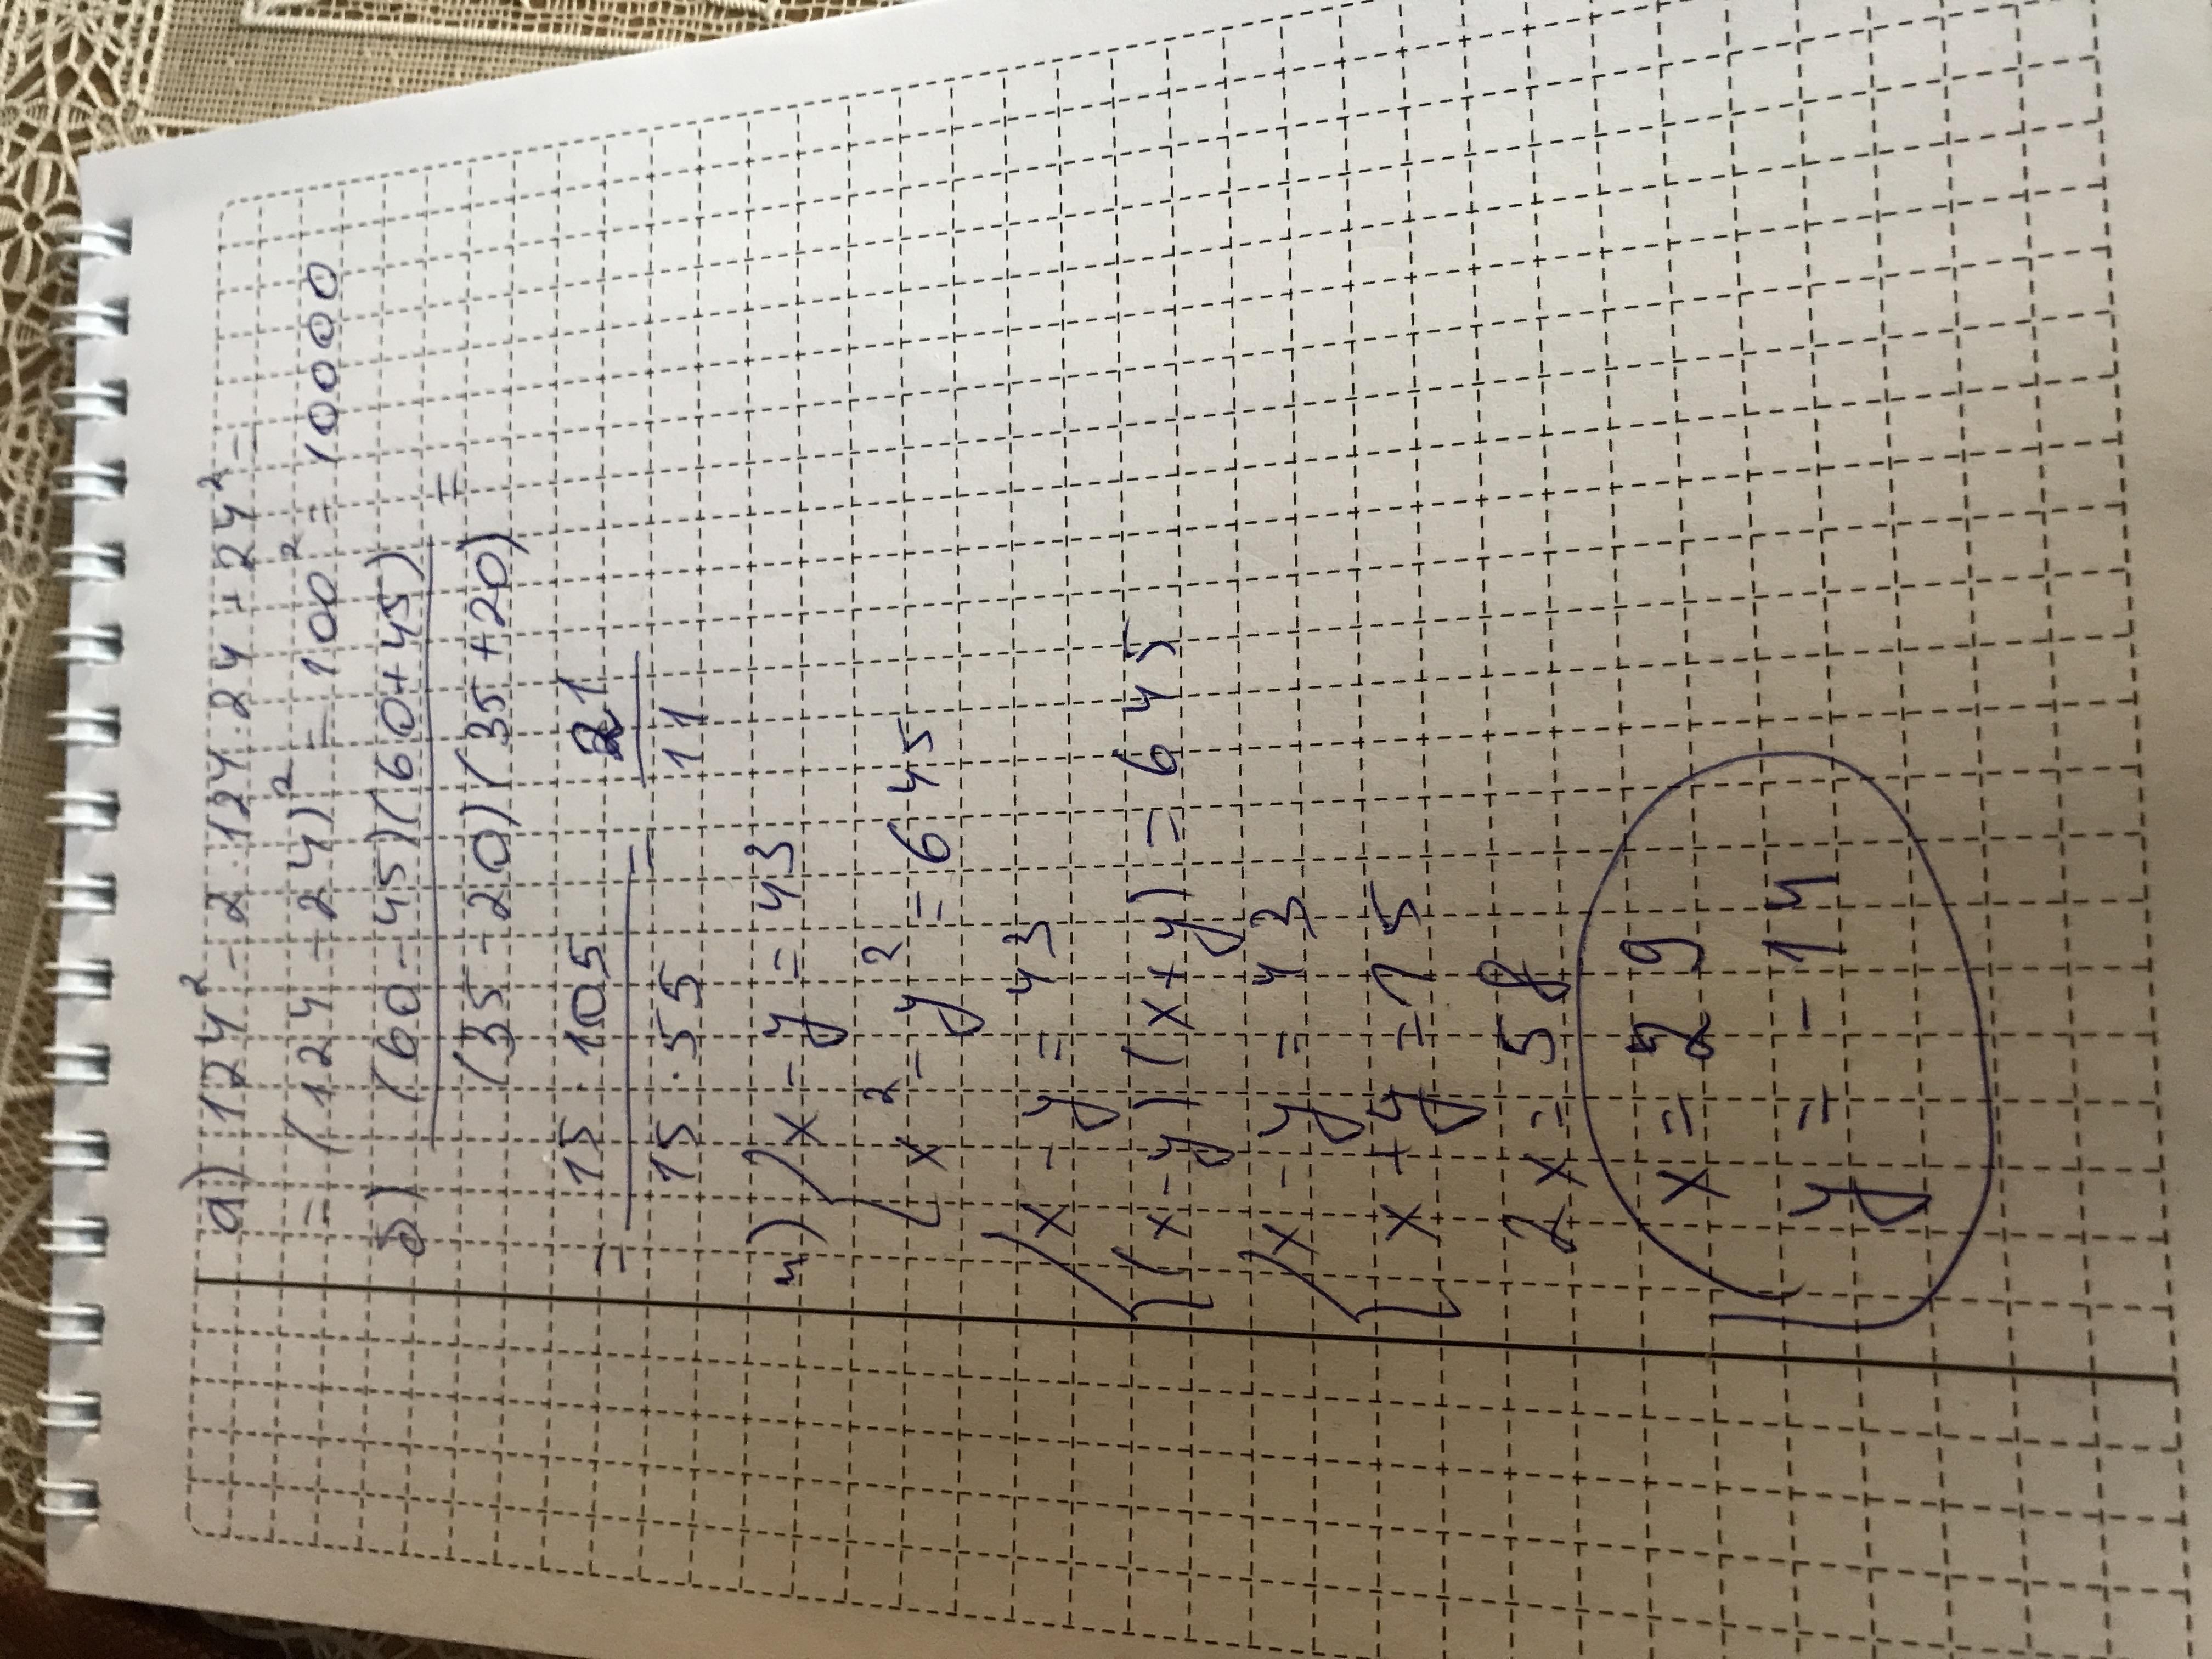 а) 124² - 2 · 124 · 24 + 24² =
= (124 - 24)² = 100² = 10000
б) (60 - 45)(60 + 45)
(35 - 20)(35 + 20) =
= 15 · 105
15 · 55 = 21
11
4) { x - y = 43
x² - y² = 645
{ x - y = 43
(x - y)(x + y) = 645
{ x - y = 43
x + y = 15
2x = 58
x = 29
y = -14